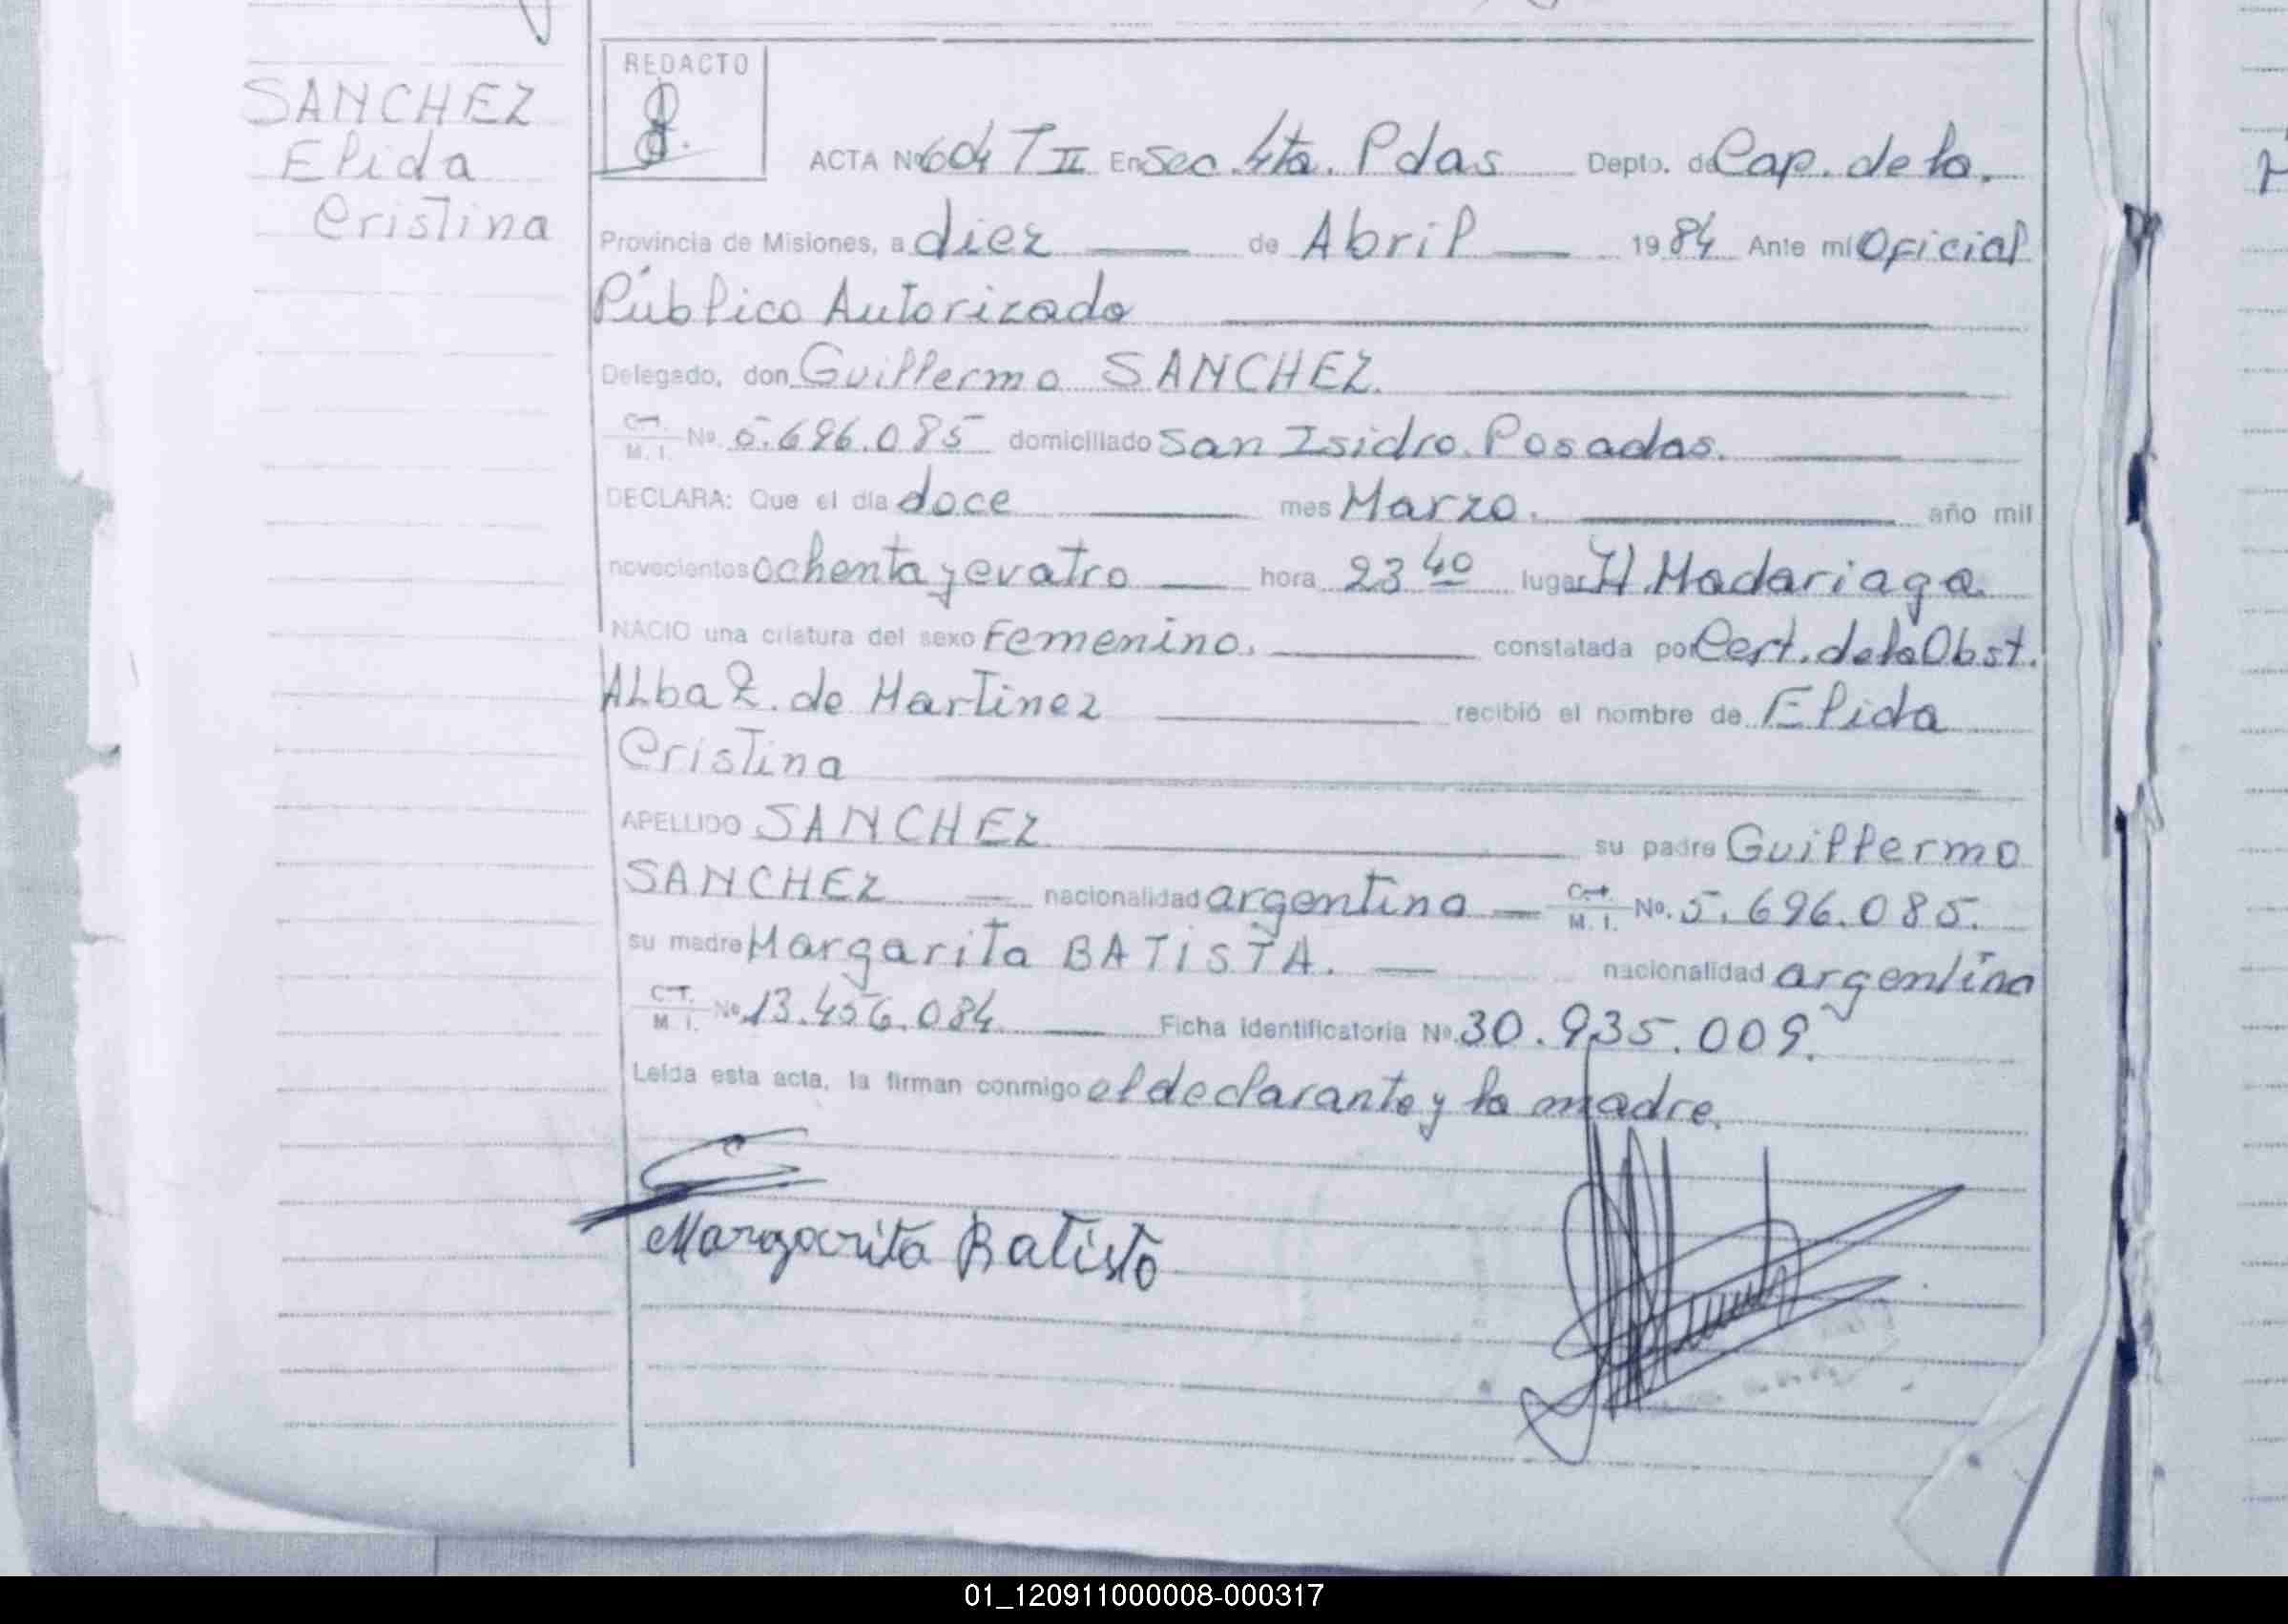 SANCHEZ
Elida
Cristina
REDACTO
ACTA Nº 604 T II En Sec. 4ta. Pdas Depto. de Cap. de la.
Provincia de Misiones, a diez de Abril 1984 Ante mí Oficial
Público Autorizado
Delegado, don Guillermo SANCHEZ.
C.I. M. I. Nº 5.696.085 domiciliado San Isidro. Posadas.
DECLARA: Que el día doce mes Marzo. año mil
novecientos ochenta y cuatro hora 23 40 lugar H. Madariaga
NACIO una criatura del sexo Femenino. constatada por Cert. de la Obst.
ALba Z. de Martinez recibió el nombre de Elida
Cristina
APELLIDO SANCHEZ su padre Guillermo
SANCHEZ nacionalidad argentina C.I. M. I. Nº. 5.696.085.
su madre Margarita BATISTA. nacionalidad argentina
C.I. M. I. Nº 13.456.084 Ficha identificatoria Nº 30.935.009.
Leída esta acta, la firman conmigo el declarante y la madre.
Margarita Batista
01_120911000008-000317